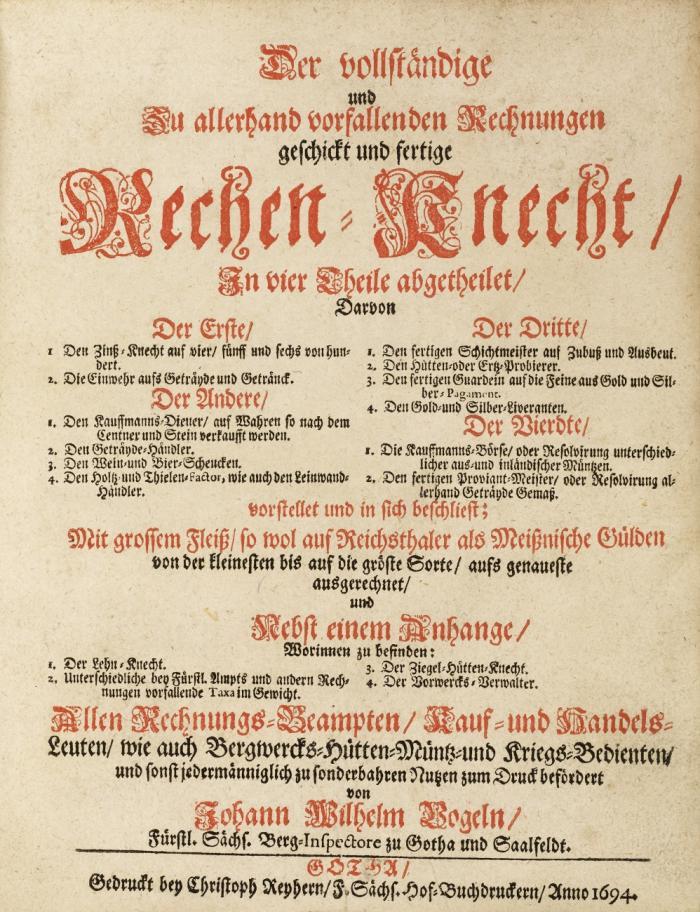 Der vollständige
und
Zu allerhand vorfallenden Rechnungen
geschickt und fertige
Rechen-Knecht/
In vier Theile abgetheilet/
Darvon
Der Erste/
1 Den Zinß-Knecht auf vier/ fünff und sechs von hun-
dert.
2. Die Einwehr aufs Geträyde und Getränck.
Der Andere/
1. Den Kauffmanns-Diener/ auf Wahren so nach dem
Centner und Stein verkaufft werden.
2. Den Geträyde-Händler.
3. Den Wein-und Bier-Schencken.
4. Den Holtz-und Thielen-Factor, wie auch den Leinwand-
Händler.
Der Dritte/
1. Den fertigen Schichtmeister auf Zubuß und Ausbeut.
2. Den Hütten-oder Ertz-Probierer.
3. Den fertigen Guardein auf die Feine aus Gold und Sil-
ber-Pagament.
4. Den Gold-und Silber-Liveranten.
Der Vierdte/
1. Die Kauffmanns-Börse/ oder Resolvirung unterschied-
licher aus-und inländischer Müntzen.
2. Den fertigen Proviant-Meister/ oder Resolvirung al-
lerhand Geträyde Gemäß.
vorstellet und in sich beschliest;
Mit grossem Fleiß/ so wol auf Reichsthaler als Meißnische Gülden
von der kleinesten bis auf die gröste Sorte/ aufs genaueste
ausgerechnet/
und
Nebst einem Anhange/
Worinnen zu befinden:
1. Der Lehn-Knecht.
2. Unterschiedliche bey Fürstl. Ampts und andern Rech-
nungen vorfallende Taxa im Gewicht.
3. Der Ziegel-Hütten-Knecht.
4. Der Vorwercks-Verwalter.
Allen Rechnungs-Beampten/ Kauf-und Handels-
Leuten/ wie auch Bergwercks-Hütten-Müntz-und Kriegs-Bedienten/
und sonst jedermänniglich zu sonderbahren Nutzen zum Druck befördert
von
Johann Wilhelm Vogeln/
Fürstl. Sächs. Berg-Inspectore zu Gotha und Saalfeldt.
GOTHA/
Gedruckt bey Christoph Reyhern/ F. Sächs. Hof-Buchdruckern/ Anno 1694.